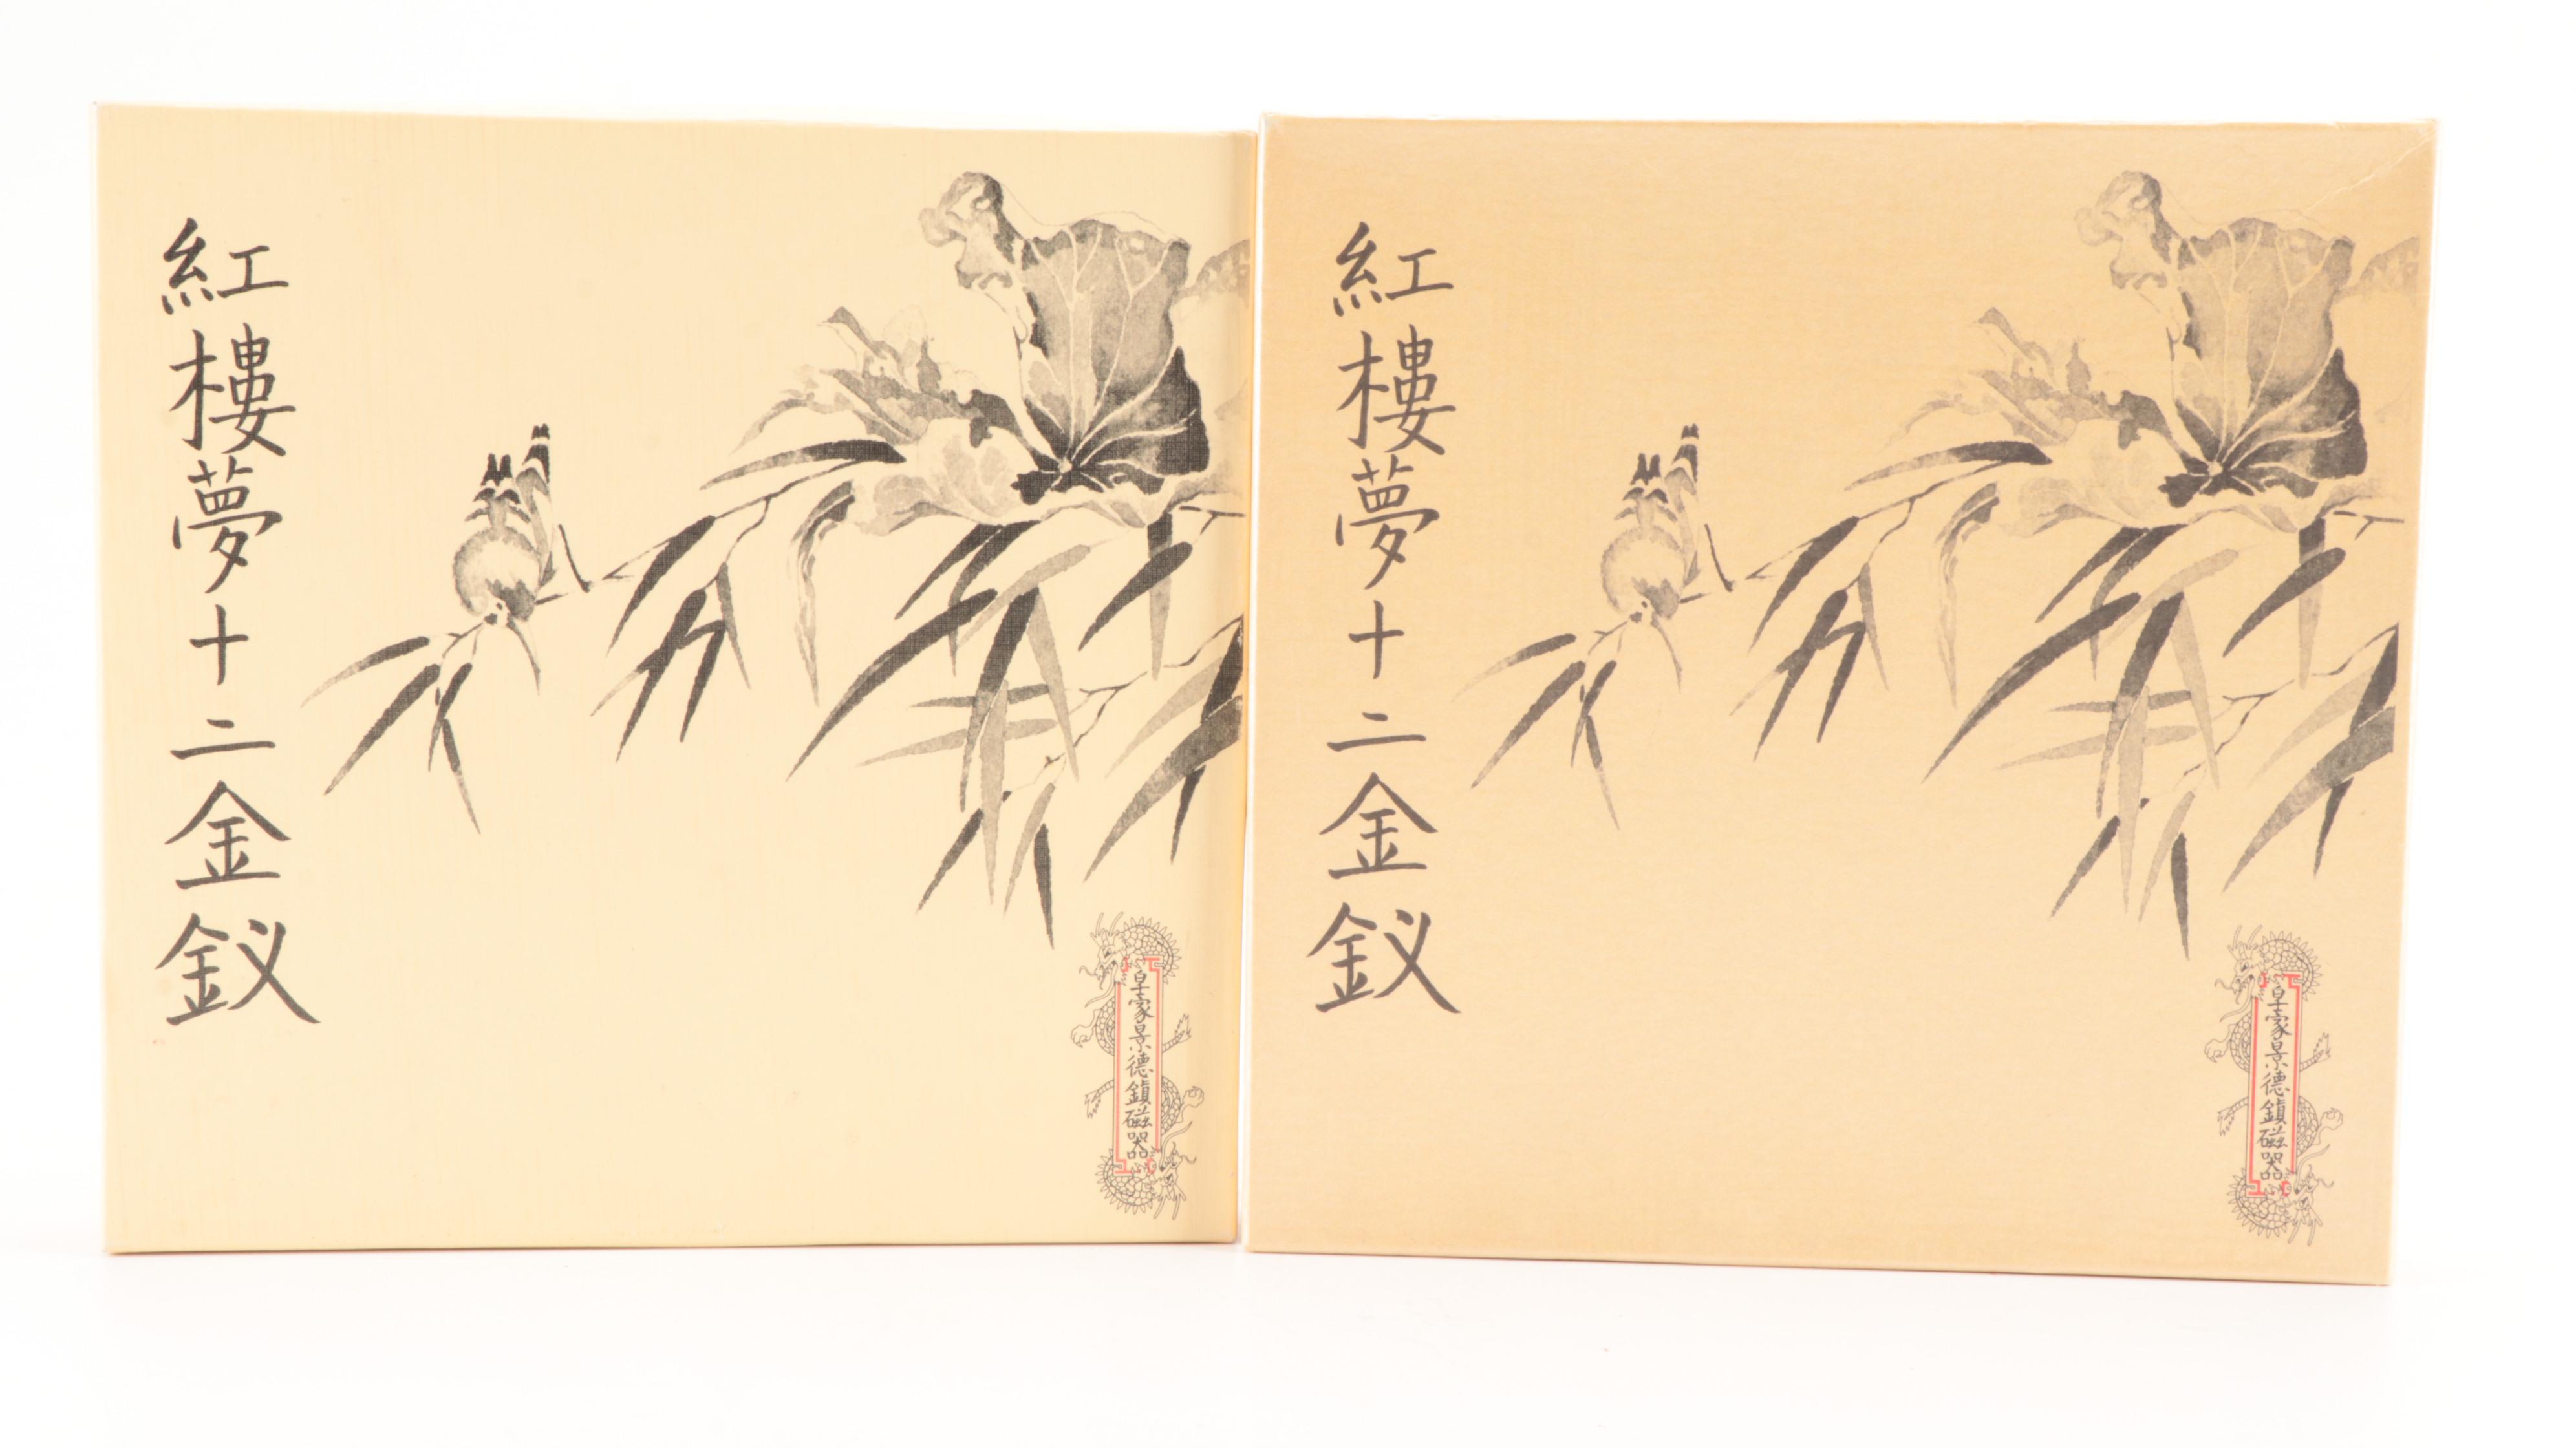 紅樓夢十二金釵
皇家景德鎮磁器
紅樓夢十二金釵
皇家景德鎮磁器